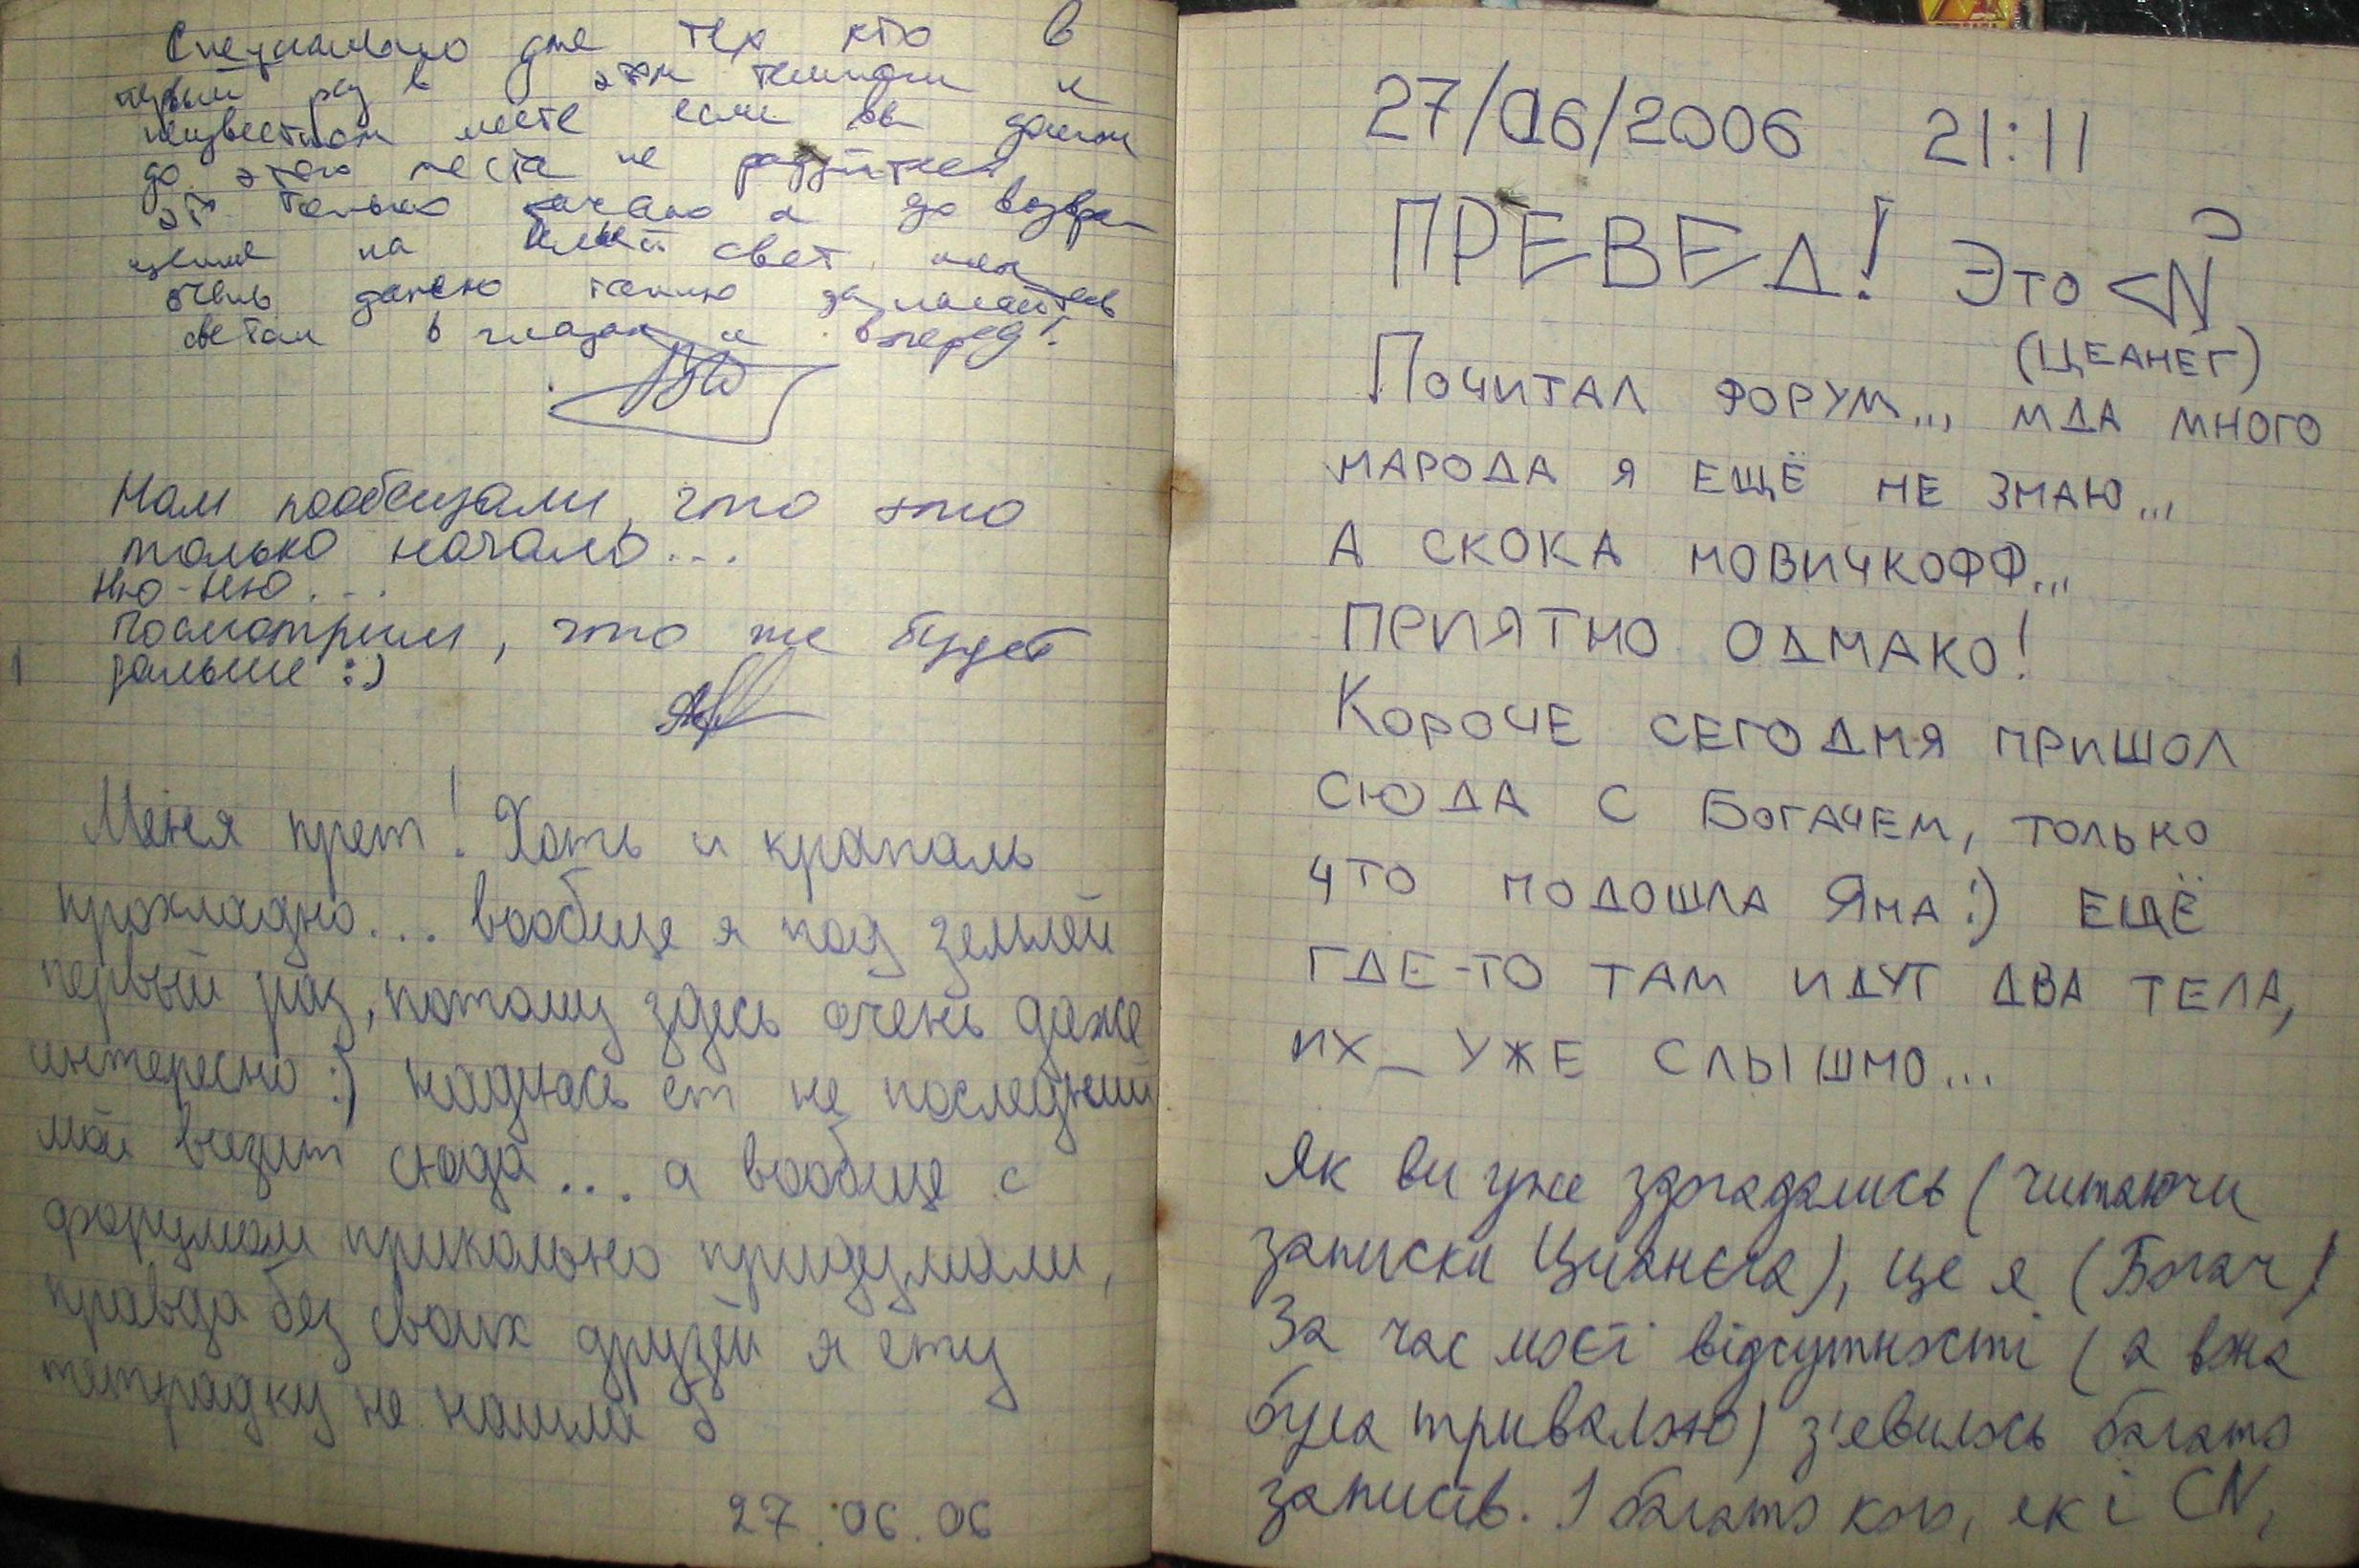 Специально для тех кто в
первый раз в этом темном и
неизвестном месте если вы дошли
до этого места не радуйтесь
это только начало и до возвра-
щения на белый свет
очень далеко
светом в глазах и вперед!
Нам пообещали, что это
только начало...
Ню-ню...
Посмотрим, что же будет
дальше :)
Меня прет! Хоть и крапаль
прохладно... вообще я под землей
первый раз, потому здесь очень даже
интересно :) надюсь ет не последний
мой визит сюда... а вообще с
форумом прикольно придумали,
правда без своих друзей я ету
тетрадку не нашла б
27.06.06
27/06/2006 21:11
ПРЕВЕД! Это CN
(ЦЕАНЕГ)
Почитал форум... мда много
народа я ещё не знаю...
А скока новичкофф...
приятно однако!
Короче сегодня пришол
сюда с Богачем, только
что подошла Яна :) ещё
где-то там идут два тела,
их_ уже слышно...
Як ви уже здогадались (читаючи
записки Цианєга), це я (Богач)
За час моєї відсутності (а вона
була тривалою) з'явилось багато
записів. І багато кого, як і CN,